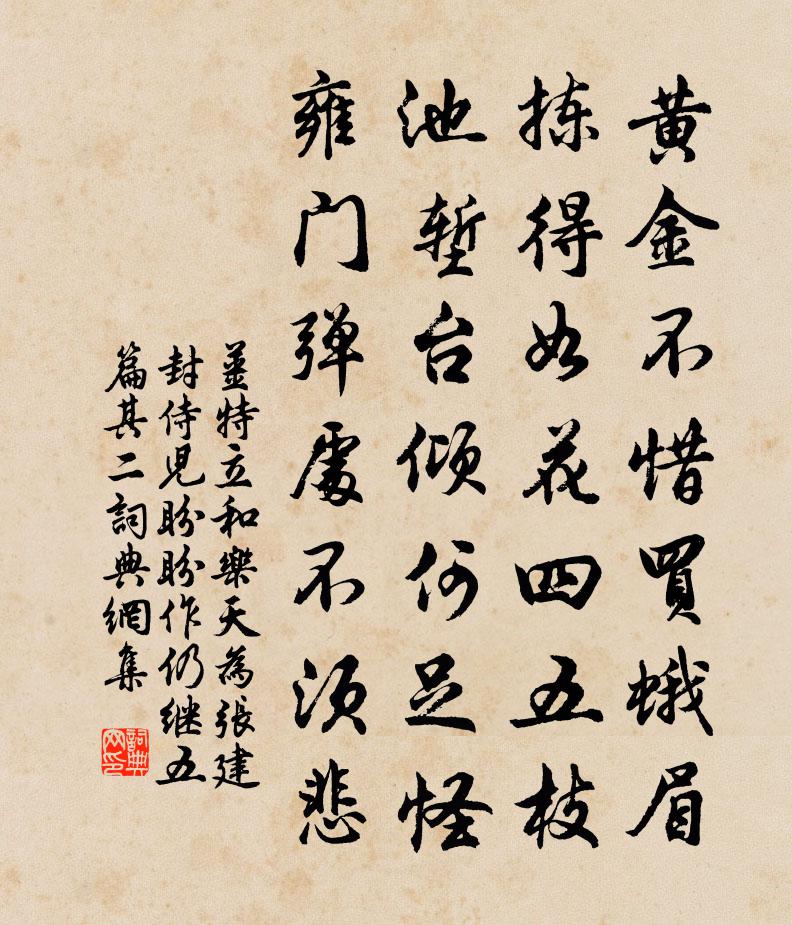 黄金不惜買蛾眉
拣得如花四五枝
池塹台傾何足怪
雍门弹處不须悲
姜特立和樂天為張建
封侍児盼盼作仍继五
篇其二詞典網集
詞典网印